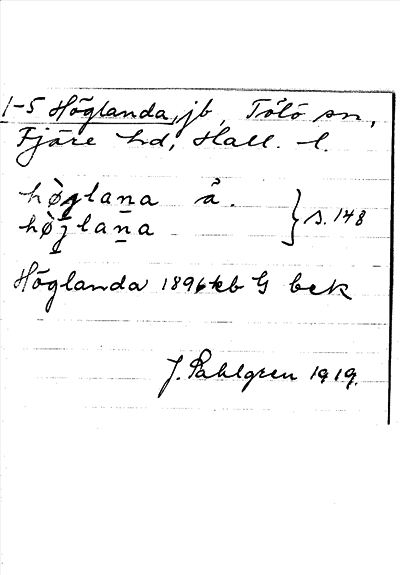 1-5 Höglanda, jb, Tölö sn,
Fjäre hd, Hall. l.
hø̀glana å. } s. 148
hø̀glana
Höglanda 1896 kb G bek
J. Sahlgren 1919.